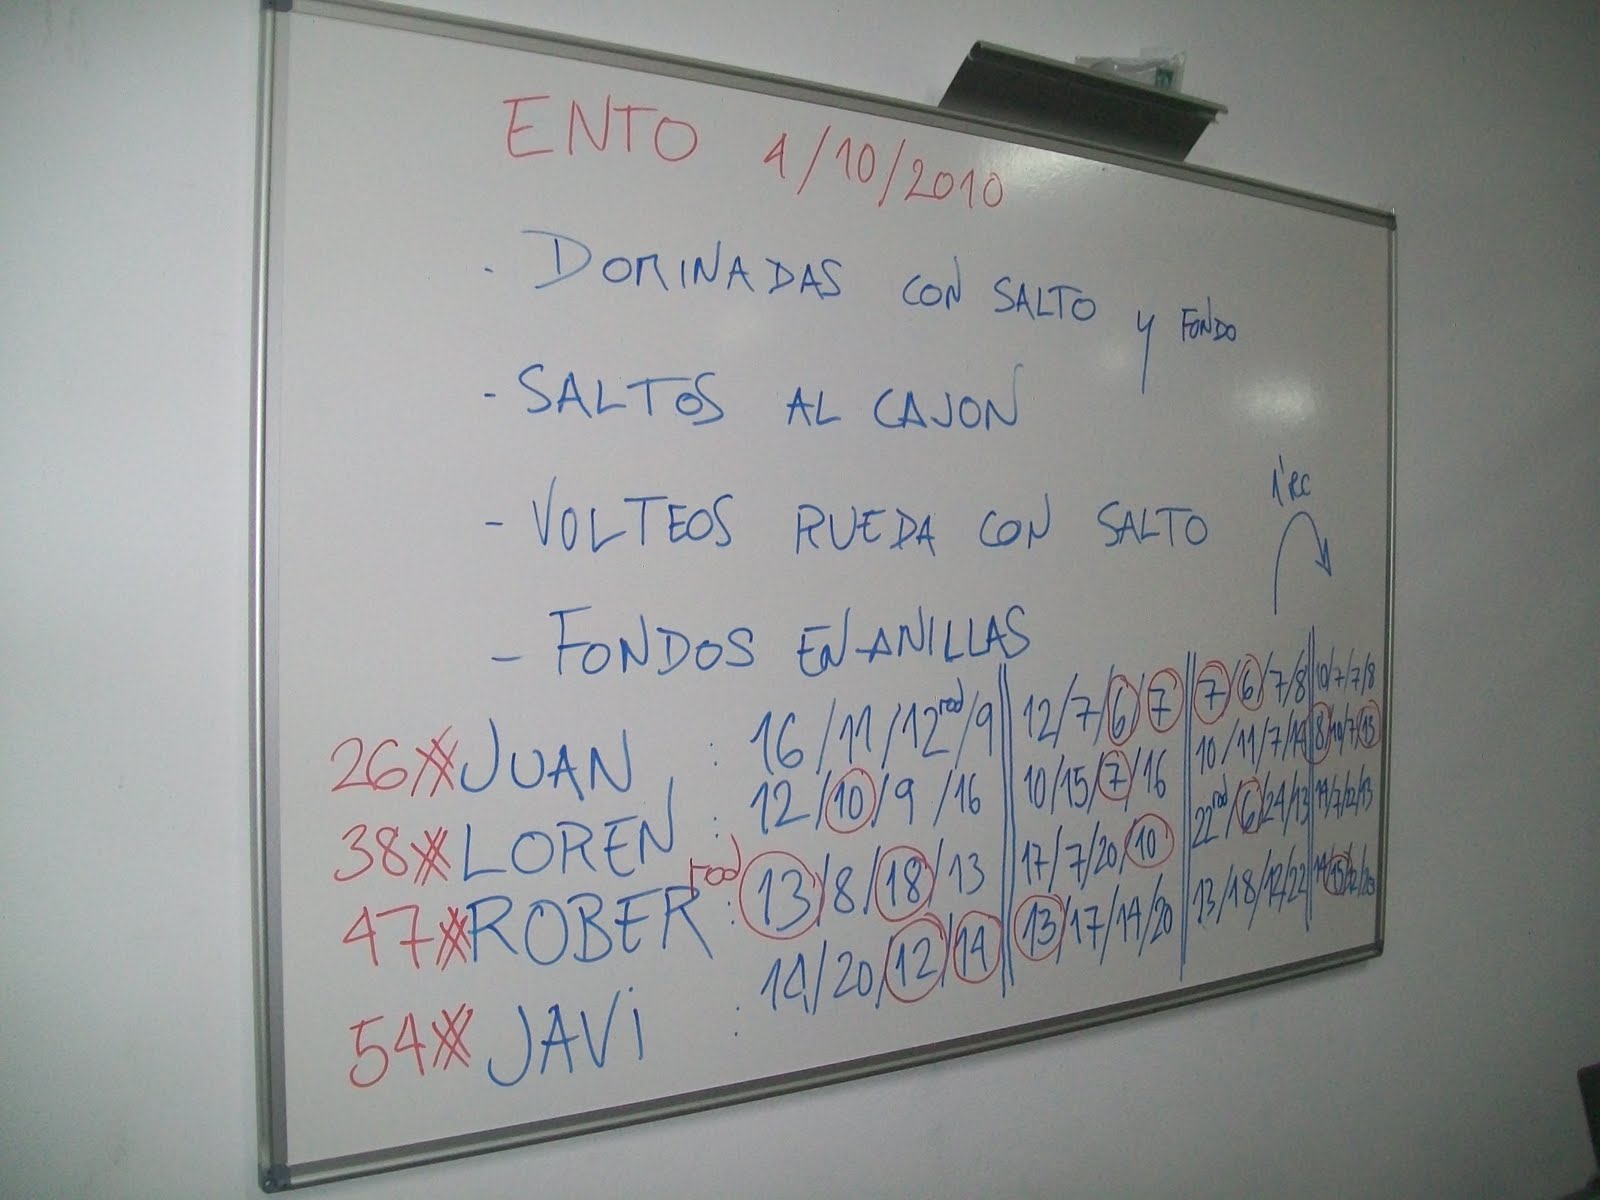 ENTO 4/10/2010
· DOMINADAS CON SALTO Y FONDO
- SALTOS AL CAJON
- VOLTEOS RUEDA CON SALTO
1'RC
- FONDOS EN ANILLAS
26 JUAN : 16/11/12rod/9 12/7/6/7 7/6/7/8 10/7/7/8
38 LOREN : 12/10/9/16 10/15/7/16 10/11/7/14 8/10/7/13
47 ROBER : rod 13/8/18/13 17/7/20/10 22rod/6/24/13 /7/22/13
54 JAVI : 14/20/12/14 13/17/14/20 13/18/12/22